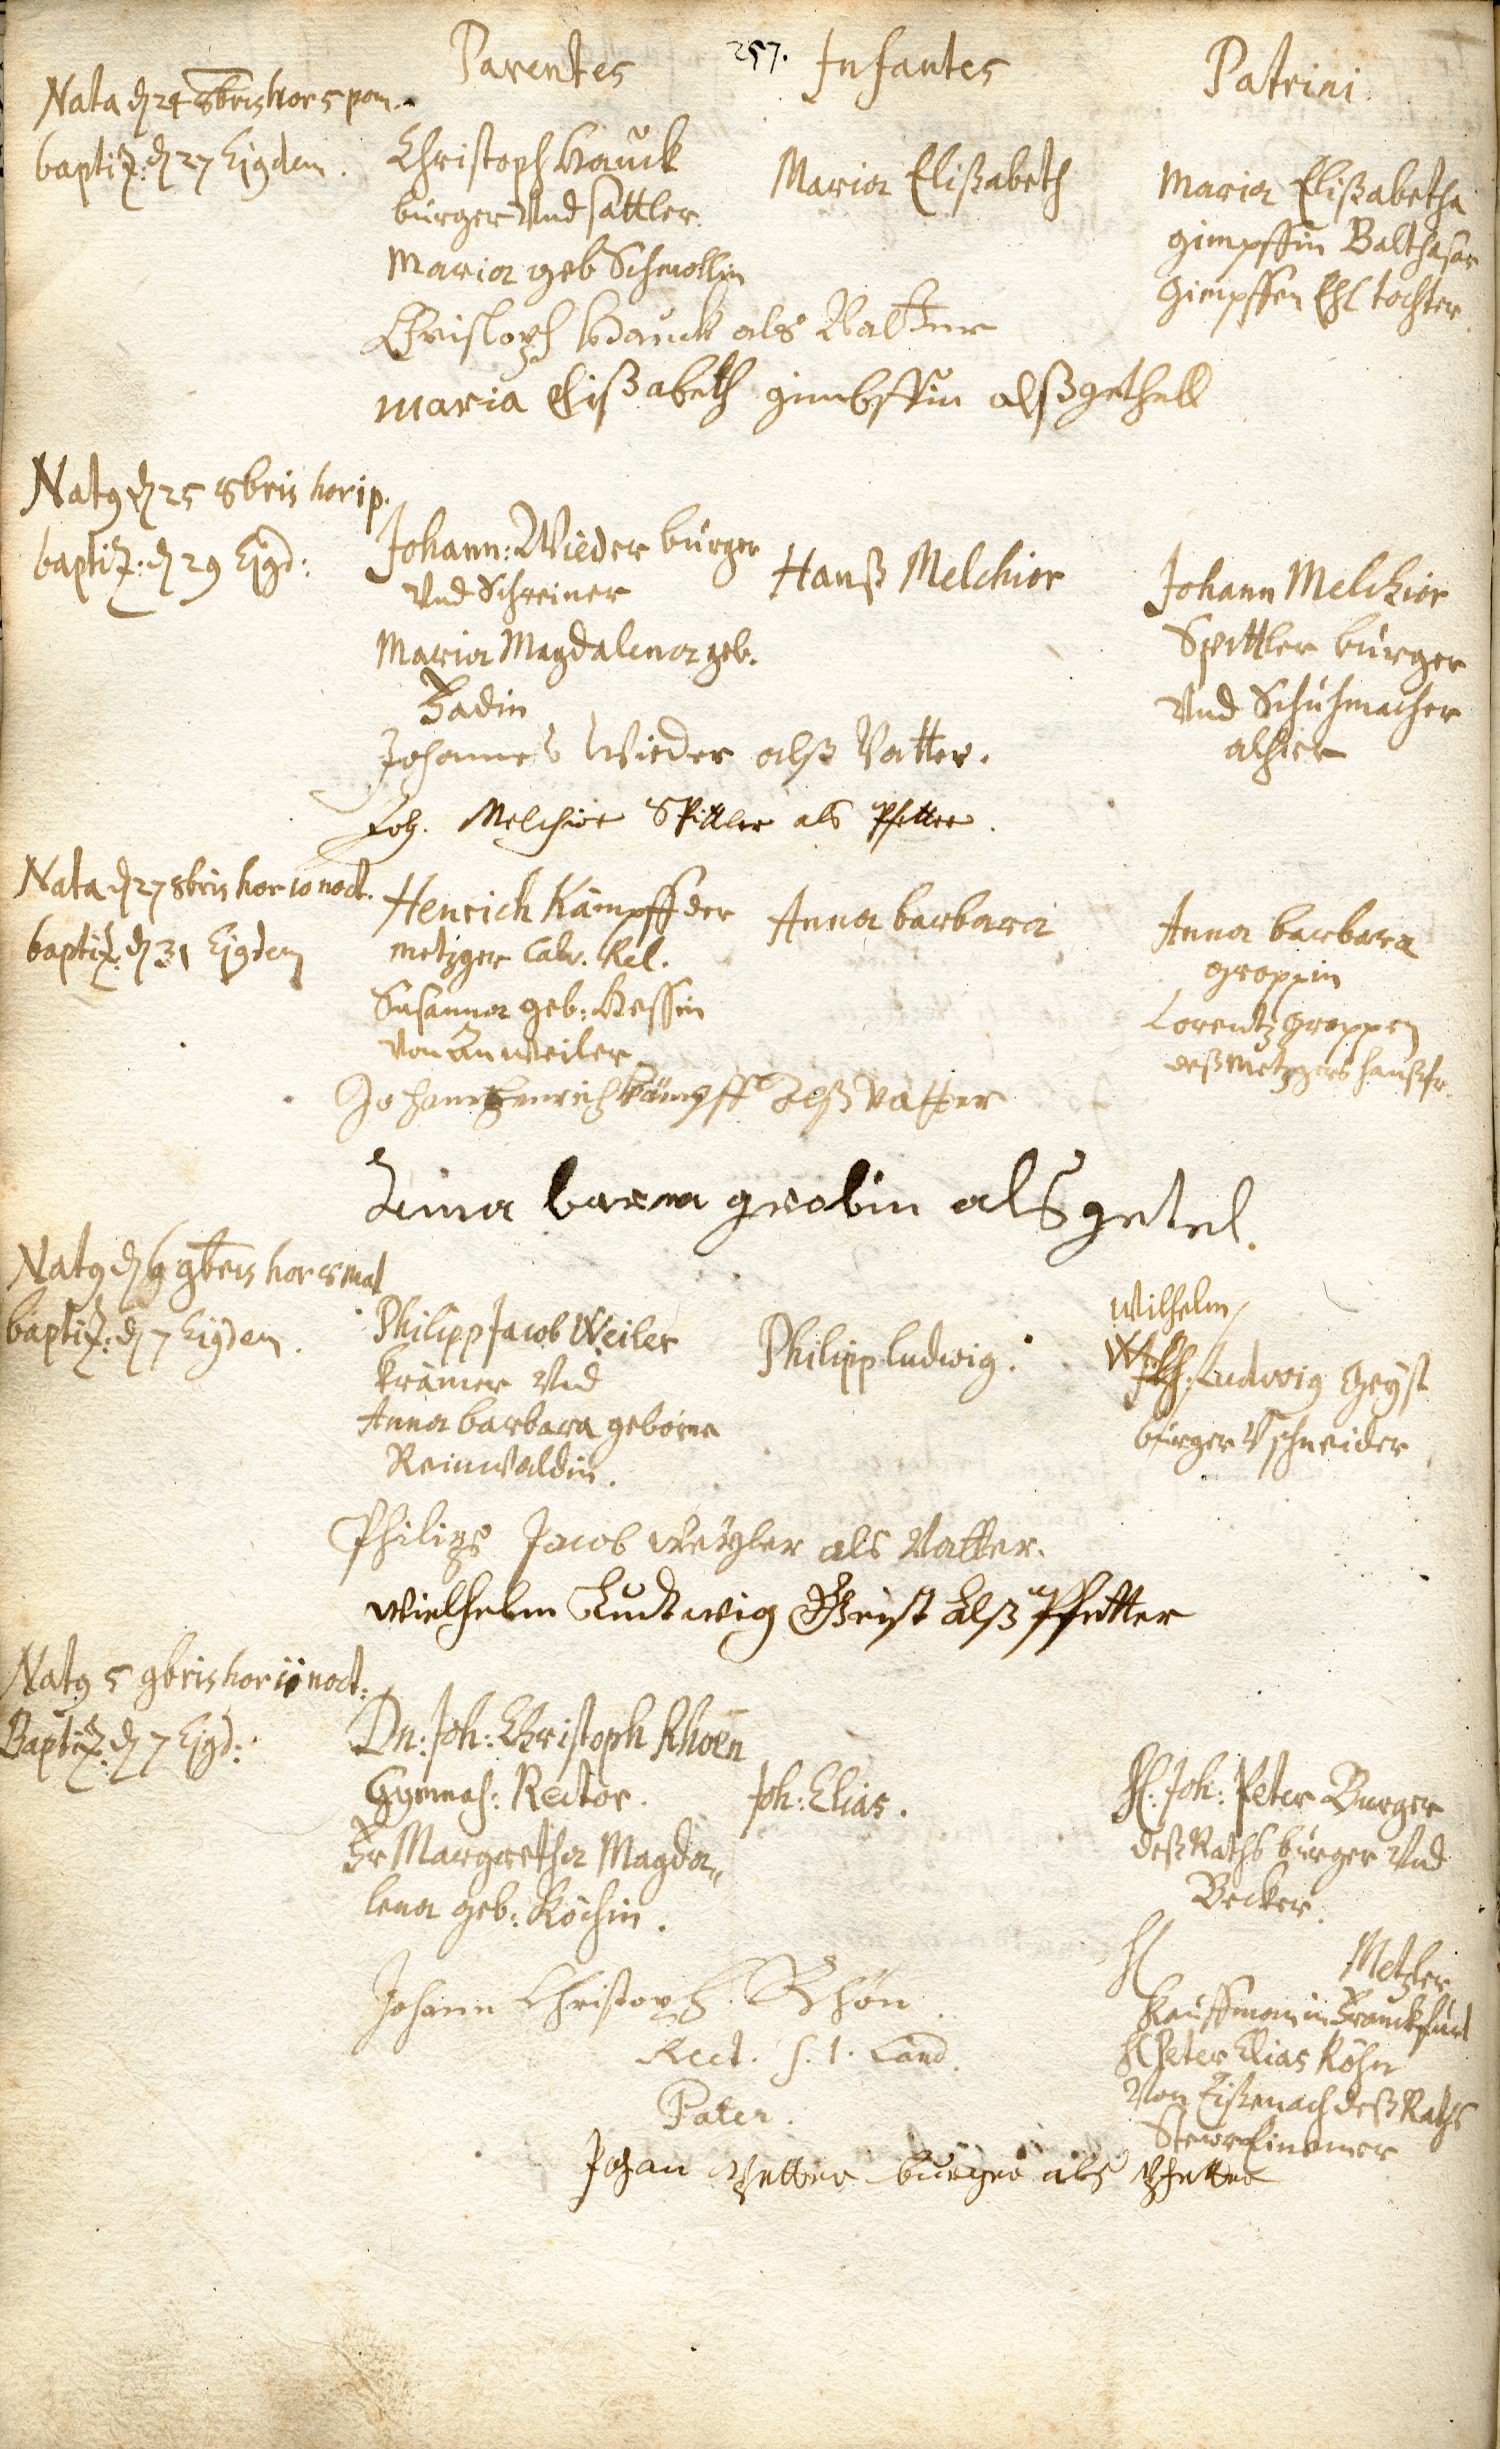 Parentes 257. Infantes Patrini.
Nata d 24 8bris hor 5 pom.
baptiz: d 27 Ejgdem.
Christoph Hauck
bürger Vnd Sattler.
Maria geb Schmollin
Maria Elißabeth
Maria Elißabetha
gimpffin Balthasar
Gimpffen Ehl tochter.
Christoph Hauck als Vatter
maria Elißabeth gimbffin alß gethell
Nat9 d 25 8bris hor 1 p.
baptiz: d 29 Ejgd:
Johann: Wieder bürger
Vnd Schreiner
Maria Magdalena geb.
Zadin
Hanß Melchior
Johann Melchior
Spittler bürger
Vnd Schuhmacher
alhier
Johannes Wieder alß Vatter.
Joh. Melchior Spittler als Pfetter.
Nata d 27 8bris hor 10 noct.
baptiz: d 31 Ejgdem
Henrich Kämpff der
metzger Calv. Rel.
Susanna geb: Hessin
von Anweiler.
Anna barbara
Anna barbara
groppin
Lorentz groppen
deß metzgers haußfr.
Johann Henrich Kämpff Alß Vatter
Anna barbra grobin als getel.
Nat9 d 6 9bris hor 8 mat
baptiz: d 7 Ejgdem.
Philipp Jacob Weiler
krämer Vnd
Anna barbara geborne
Reinwaldin.
Philipp Ludwig.
Wilhelm
Joh: Ludwig Geÿst
bürger V schneider
Philips Jacob Weÿler als Vatter.
Wielhelm Ludwig Geist Alß Pfetter
Nat9 5 9bris hor 11 noct:
Baptiz: d 7 Ejgd:
Dn: Joh: Christoph Rhoën
Gymnas: Rector.
Fr Margretha Magda„
lena geb: Köchin.
Joh: Elias.
H: Joh: Peter Burger
deß Raths bürger Vnd
Becker.
H Metzler
Kauffman in Franckfurt
H Peter Elias Röhn
Von Eißenach deß Raths
Stewr Einemer
Johann Christoph Rhön
Rect. s. t. Land.
Pater.
Johan Petter burger als Pfetter